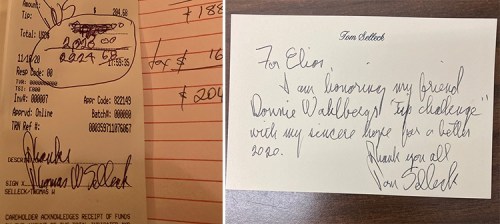 Amount: $ 204.68
Tip:
Total: USD$
2020 00
2224 68
11/10/20 17:55:35
Resp Code: 00
Inv#: 000007 Appr Code: 022149
Apprvd: Online Batch#: 000008
TRN Ref #:
Thanks
Thomas W Selleck
SIGN X
SELLECK/THOMAS W
CARDHOLDER ACKNOWLEDGES RECEIPT OF FUNDS
188
tax $ 16
$ 204
Tom Selleck
For Elios,
I am honoring my friend
Donnie Wahlberg's "tip challenge"
with my sincere hope for a better
2020.
Thank you all
Tom Selleck